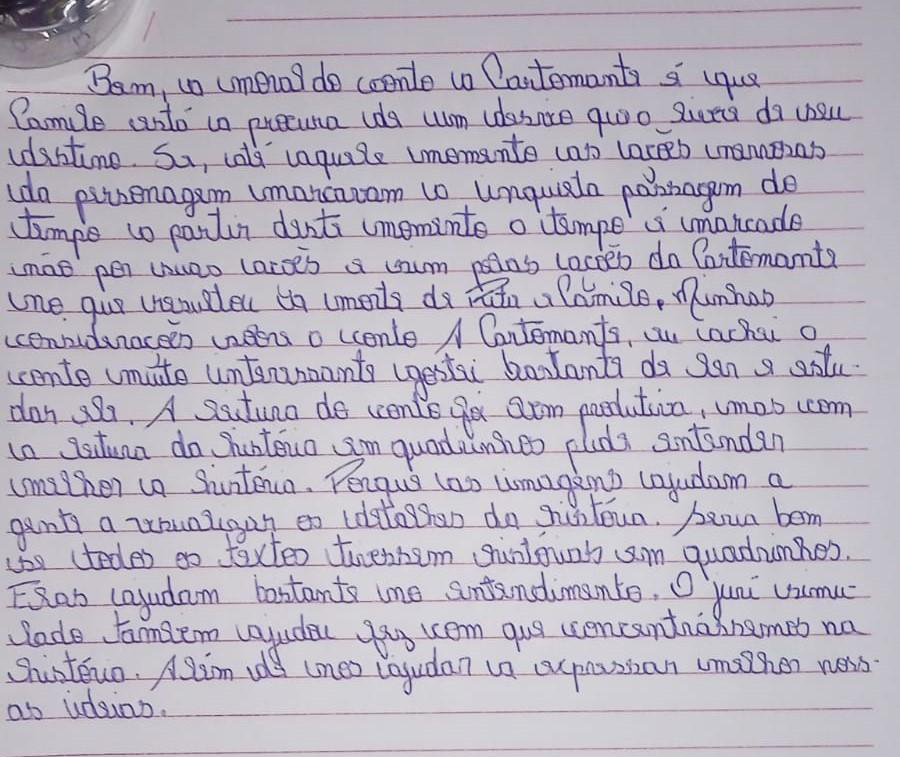 Bem, a moral do conto a Cartomante é que
Camilo está a procura de um desvie que o livre de seu
destino. Se, até aquele momento as ações
da personagem marcavam a inquieta passagem do
tempo a partir deste momento o tempo é marcado
não por suas ações e sim pelas ações da Cartomante
no que na mente de Rita e Camilo. Minhas
considerações sobre o conto A Cartomante, eu achei o
conto muito interessante gostei bastante de ler e estu-
dar ele. A leitura do conto foi bem produtiva, mas com
a leitura da história em quadrinhos pude entender
melhor a história. Porque as imagens ajudam a
gente a visualizar os detalhes da história. Seria bom
se todos os textos tivessem histórias em quadrinhos.
Elas ajudam bastante no entendimento. O juri simu-
lado também ajudou fez com que concentrássemos na
história. Além de nos ajudar a expressar melhor noss-
as ideias.